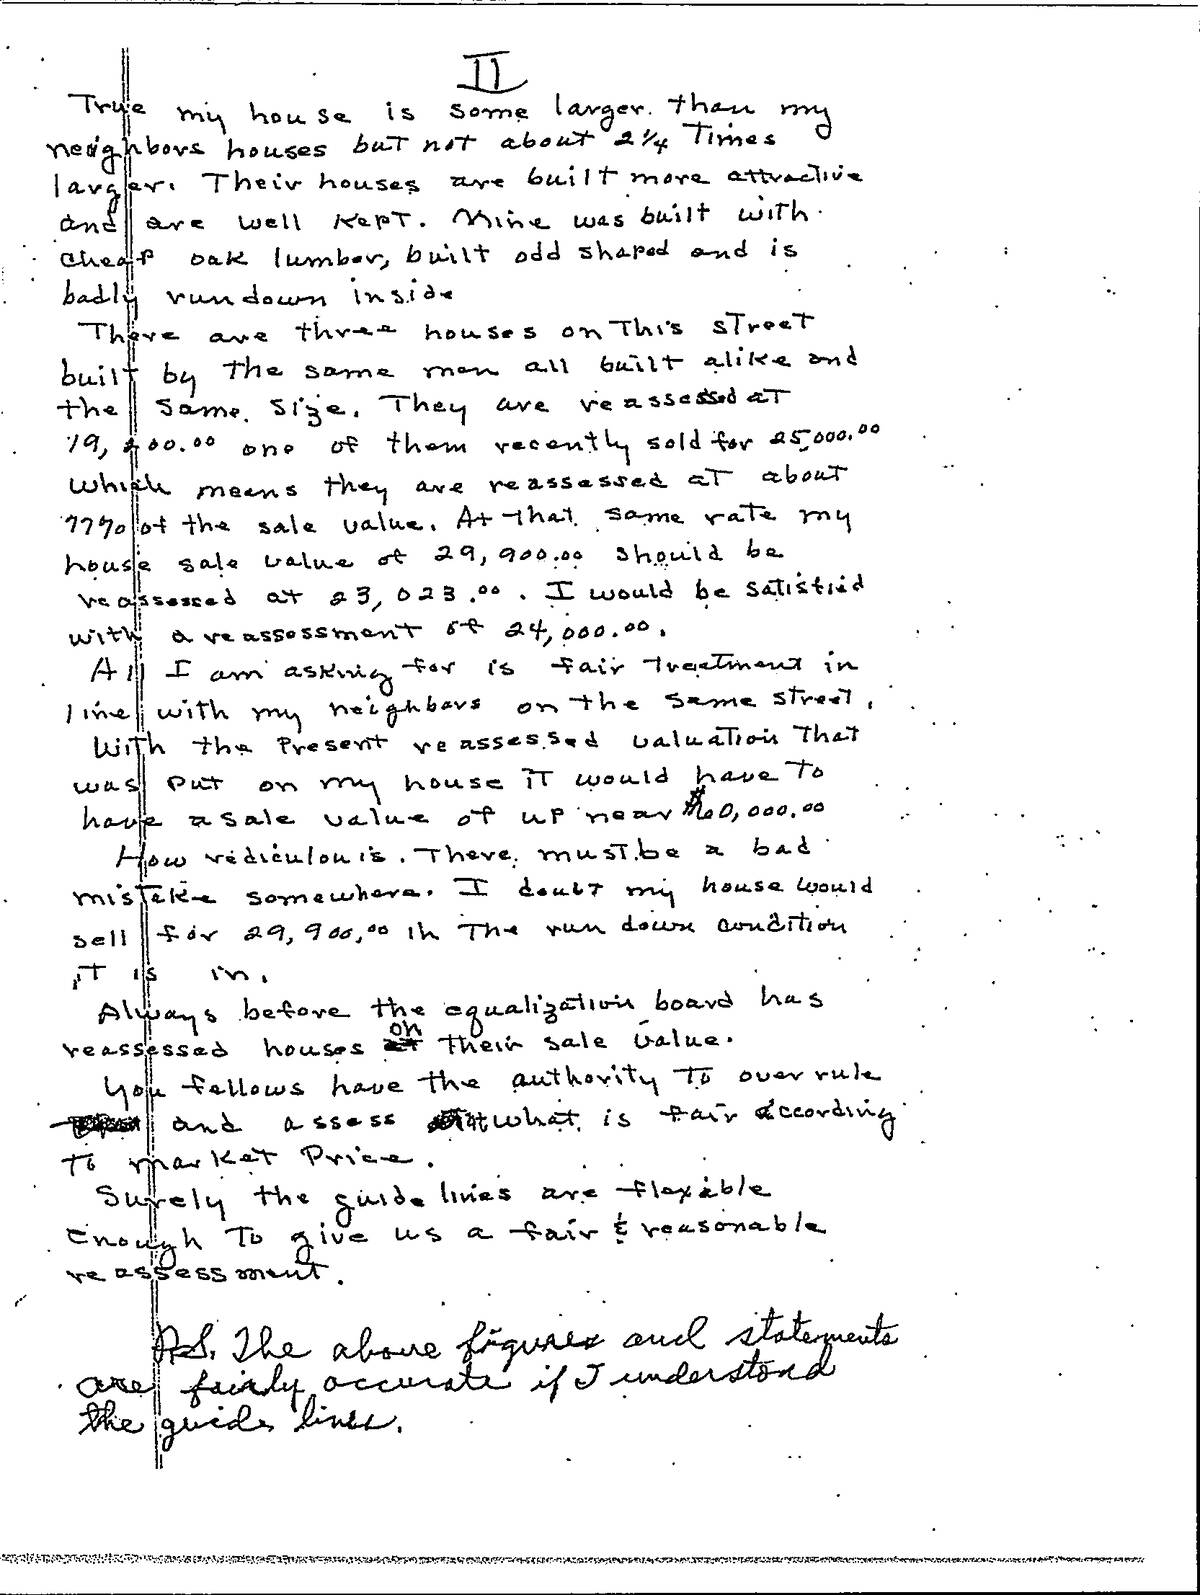 II
True my house is some larger. than my
neighbors houses but not about 2¼ Times
larger. Their houses are built more attractive
and are well kept. Mine was built with
cheap oak lumber, built odd shaped and is
badly run down inside
There are three houses on This street
built by the same men all built alike and
the same size. They are reassessed at
19,200.00 one of them recently sold for 25,000.00
which means they are reassessed at about
77% of the sale value. At that same rate my
house sale value of 29,900.00 should be
reassessed at 23,023.00. I would be satisfied
with a reassessment of 24,000.00.
All I am asking for is fair treatment in
line with my neighbors on the same street.
With the Present reassessed valuation That
was put on my house it would have to
have a sale value of up near $60,000.00
How rediculouis. There must be a bad
mistake somewhere. I doubt my house would
sell for 29,900.00 in The run down condition
it is in.
Always before the equalization board has
reassessed houses on their sale value.
You fellows have the authority to over rule
and assess at what is fair according
to market Price.
Surely the guide lines are flexible
Enough to give us a fair & reasonable
reassessment.
P.S. The above figures and statements
are fairly accurate if I understood
the guide lines.